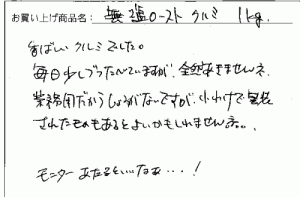 お買い上げ商品名： 無塩ロースト クルミ 1kg.
香ばしいクルミでした。
毎日少しづつたべていますが、全然あきませんネ.
業務用だからしょうがないですが、小わけで包装
されたものもあるとよいかもしれませんネ。.
モニターあたるといいなぁ・・・！